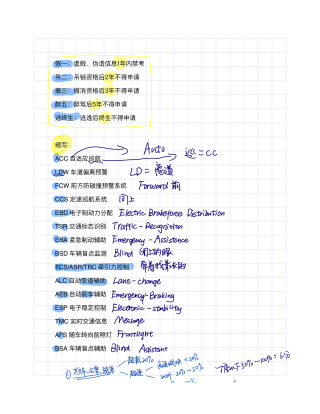 假一：虚假、伪造信息1年内禁考
吊二：吊销资格后2年不得申请
撤三：撤消资格后3年不得申请
醉五：醉驾后5年不得申请
逃终生：逃逸后终生不得申请
缩写：
ACC 自适应巡航 Auto 巡=CC
LDW 车道偏离预警 LD=离道
FCW 前方防碰撞预警系统 Forward 前
CCS 定速巡航系统 同上
EBD 电子制动力分配 Electric Brakeforce Distribution
TSR 交通标志识别 Traffic-Recognition
EBA 紧急制动辅助 Emergency-Assistance
BSD 车辆盲点监测 Blind
TCS/ASR/TRC 牵引力控制
ALC 自动变道辅助 Lane-change
AEB 自动刹车辅助 Emergency-Braking
ESP 电子稳定控制 Electronic-stability
TMC 实时交通信息 Message
AFS 随车转向前照灯 Frontlight
BSA 车辆盲点辅助 Blind Assistant
① 超载20% <20%
20%~50% 50%~100% = 6分